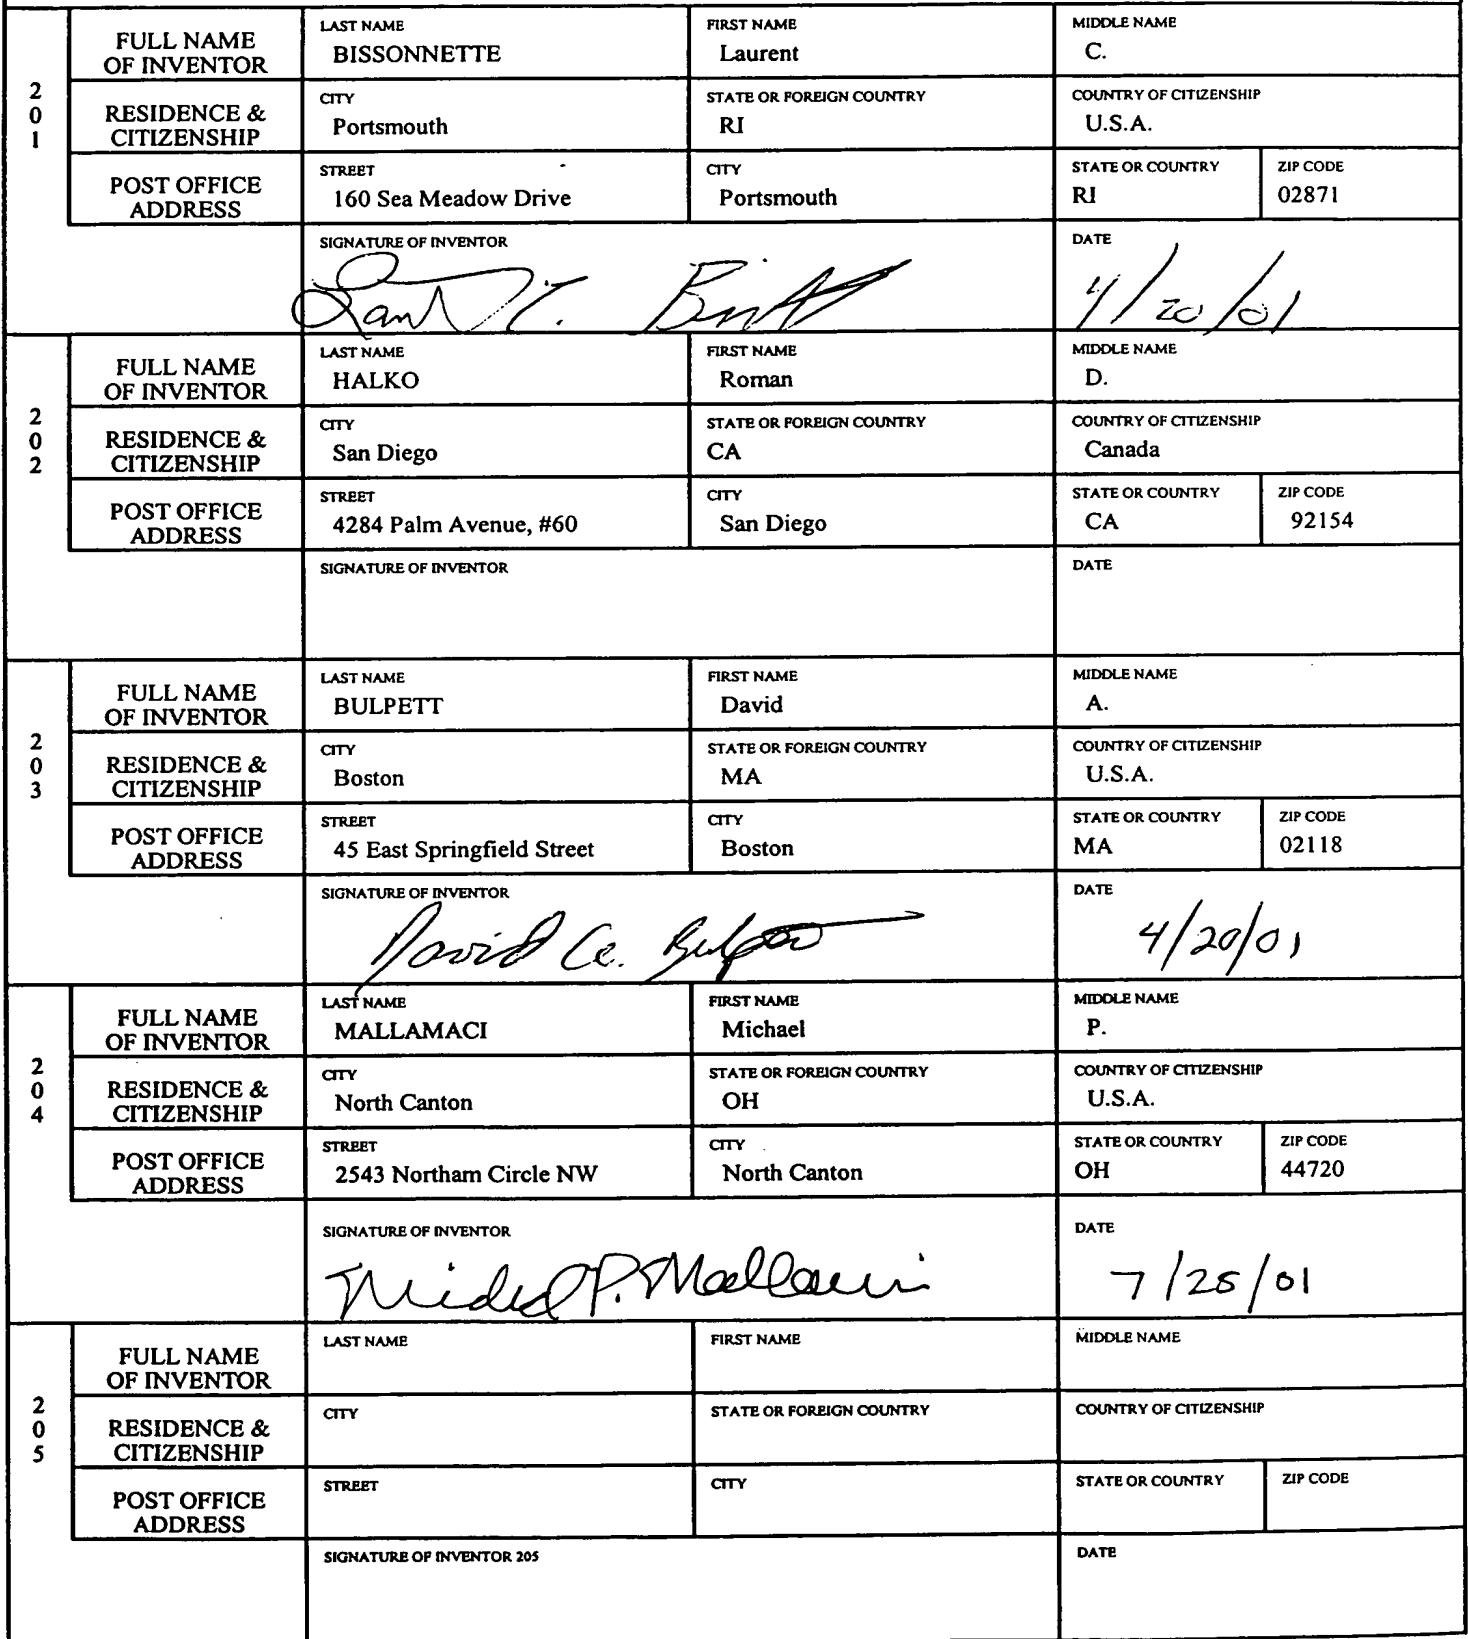 201
FULL NAME OF INVENTOR
LAST NAME
BISSONNETTE
FIRST NAME
Laurent
MIDDLE NAME
C.
RESIDENCE & CITIZENSHIP
CITY
Portsmouth
STATE OR FOREIGN COUNTRY
RI
COUNTRY OF CITIZENSHIP
U.S.A.
POST OFFICE ADDRESS
STREET
160 Sea Meadow Drive
CITY
Portsmouth
STATE OR COUNTRY
RI
ZIP CODE
02871
SIGNATURE OF INVENTOR
DATE
4/20/01
202
FULL NAME OF INVENTOR
LAST NAME
HALKO
FIRST NAME
Roman
MIDDLE NAME
D.
RESIDENCE & CITIZENSHIP
CITY
San Diego
STATE OR FOREIGN COUNTRY
CA
COUNTRY OF CITIZENSHIP
Canada
POST OFFICE ADDRESS
STREET
4284 Palm Avenue, #60
CITY
San Diego
STATE OR COUNTRY
CA
ZIP CODE
92154
SIGNATURE OF INVENTOR
DATE
203
FULL NAME OF INVENTOR
LAST NAME
BULPETT
FIRST NAME
David
MIDDLE NAME
A.
RESIDENCE & CITIZENSHIP
CITY
Boston
STATE OR FOREIGN COUNTRY
MA
COUNTRY OF CITIZENSHIP
U.S.A.
POST OFFICE ADDRESS
STREET
45 East Springfield Street
CITY
Boston
STATE OR COUNTRY
MA
ZIP CODE
02118
SIGNATURE OF INVENTOR
David A.
DATE
4/20/01
204
FULL NAME OF INVENTOR
LAST NAME
MALLAMACI
FIRST NAME
Michael
MIDDLE NAME
P.
RESIDENCE & CITIZENSHIP
CITY
North Canton
STATE OR FOREIGN COUNTRY
OH
COUNTRY OF CITIZENSHIP
U.S.A.
POST OFFICE ADDRESS
STREET
2543 Northam Circle NW
CITY
North Canton
STATE OR COUNTRY
OH
ZIP CODE
44720
SIGNATURE OF INVENTOR
Michael P. Mallamaci
DATE
7/25/01
205
FULL NAME OF INVENTOR
LAST NAME
FIRST NAME
MIDDLE NAME
RESIDENCE & CITIZENSHIP
CITY
STATE OR FOREIGN COUNTRY
COUNTRY OF CITIZENSHIP
POST OFFICE ADDRESS
STREET
CITY
STATE OR COUNTRY
ZIP CODE
SIGNATURE OF INVENTOR 205
DATE